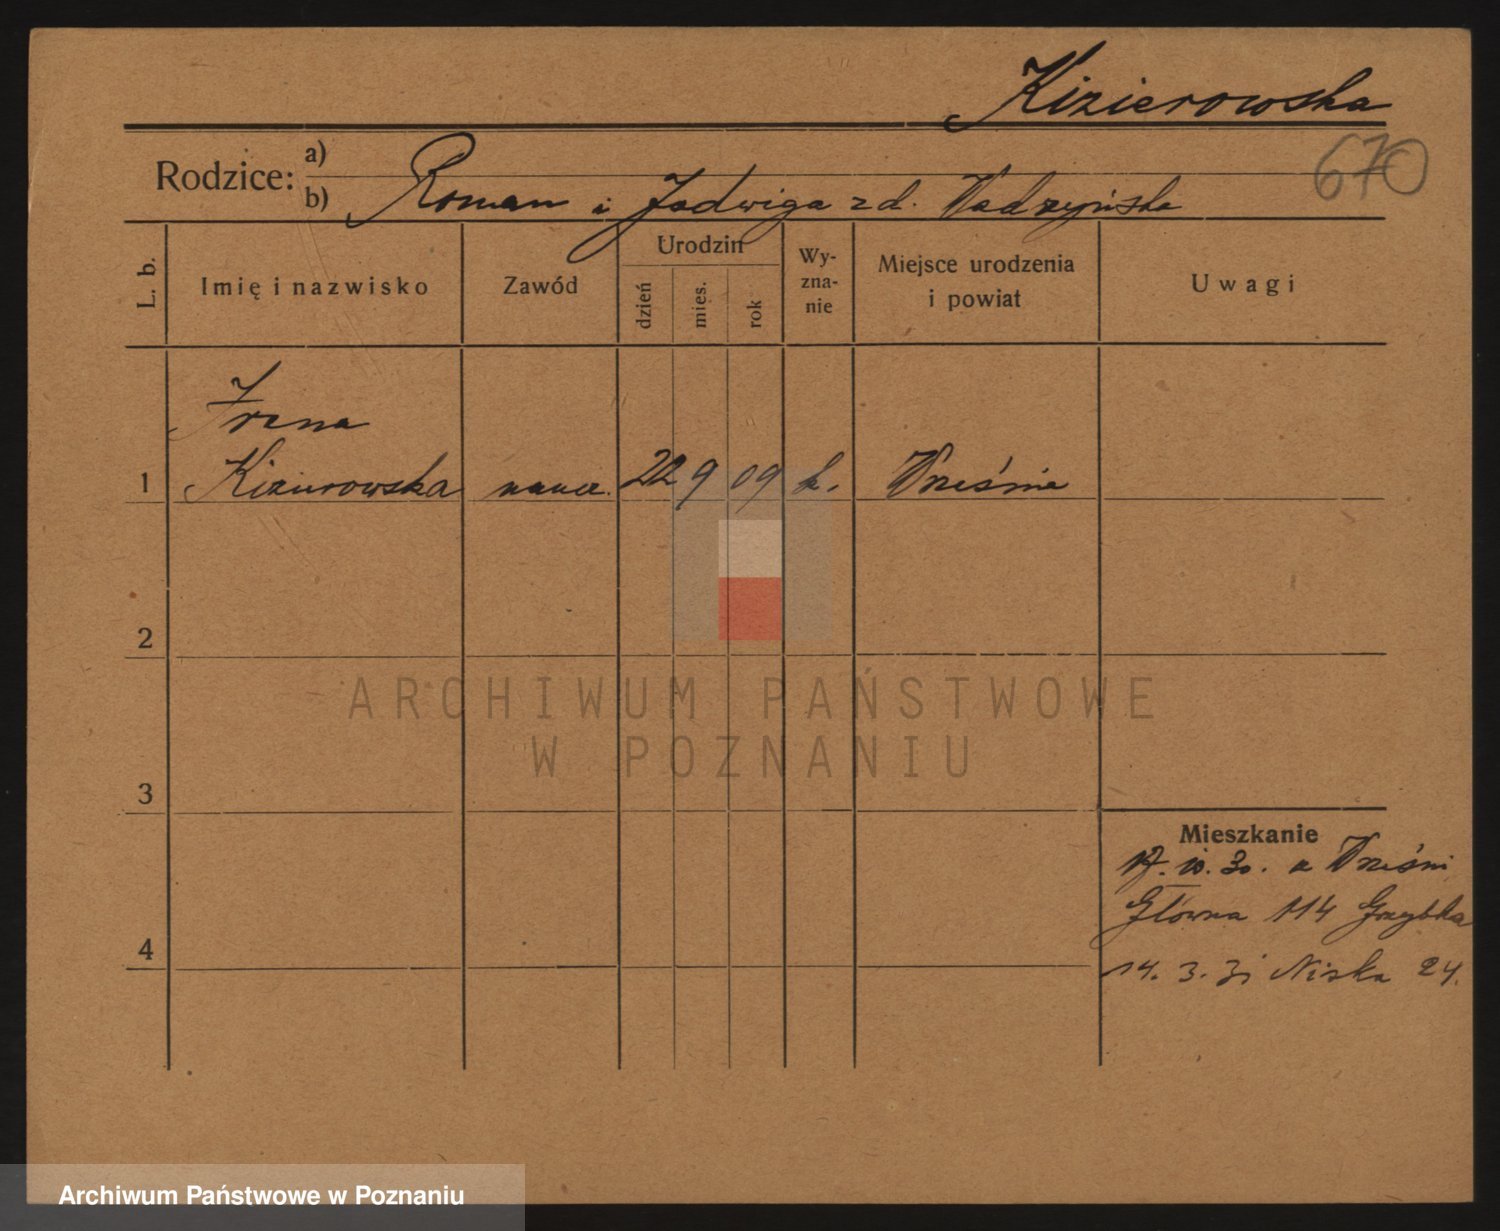 Kizierowska
670
Rodzice: a)
b) Roman i Jadwiga z d. Wadzyńska
L. b.
Imię i nazwisko
Zawód
Urodzin
dzień
mies.
rok
Wy-
zna-
nie
Miejsce urodzenia
i powiat
Uwagi
Irena
1 Kizierowska naucz. 22 9 09 k. Wrześnie
2
3
4
Mieszkanie
17. 10. 30. z Wrześni
Główna 114 Grzybka
14. 3. 31 Niska 24.
ARCHIWUM PAŃSTWOWE
W POZNANIU
Archiwum Państwowe w Poznaniu